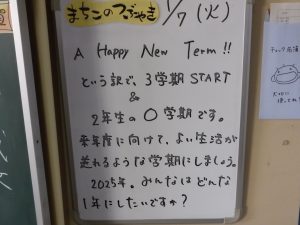 まちこのつぶやき 1/7(火)
A Happy New Term!!
という訳で、3学期START
&
2年生の〇学期です。
来年度に向けて、よい生活が
送れるような学期にしましょう。
2025年。みんなはどんな
1年にしたいですか?